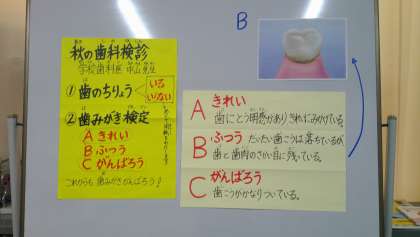 秋の歯科検診
学校歯科医 中山先生
①歯のちりょう
いる
いらない
②歯みがき検定
A きれい
B ふつう
C がんばろう
これからも歯みがきがんばろう！
B
A きれい
歯にとう明感がありきれいにみがけている。
B ふつう だいたい歯こうは落ちているが、
歯と歯肉のさかい目に残っている。
C がんばろう
歯こうがかなりついている。